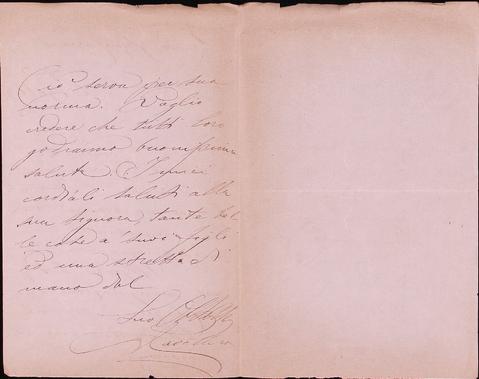 Ciò serva per sua
norma. Voglio
credere che tutti loro
godranno buonissima
salute. I miei
cordiali saluti alla
sua Signora, tante bel
le cose a' suoi figli
ed una stretta di
mano dal
Suo